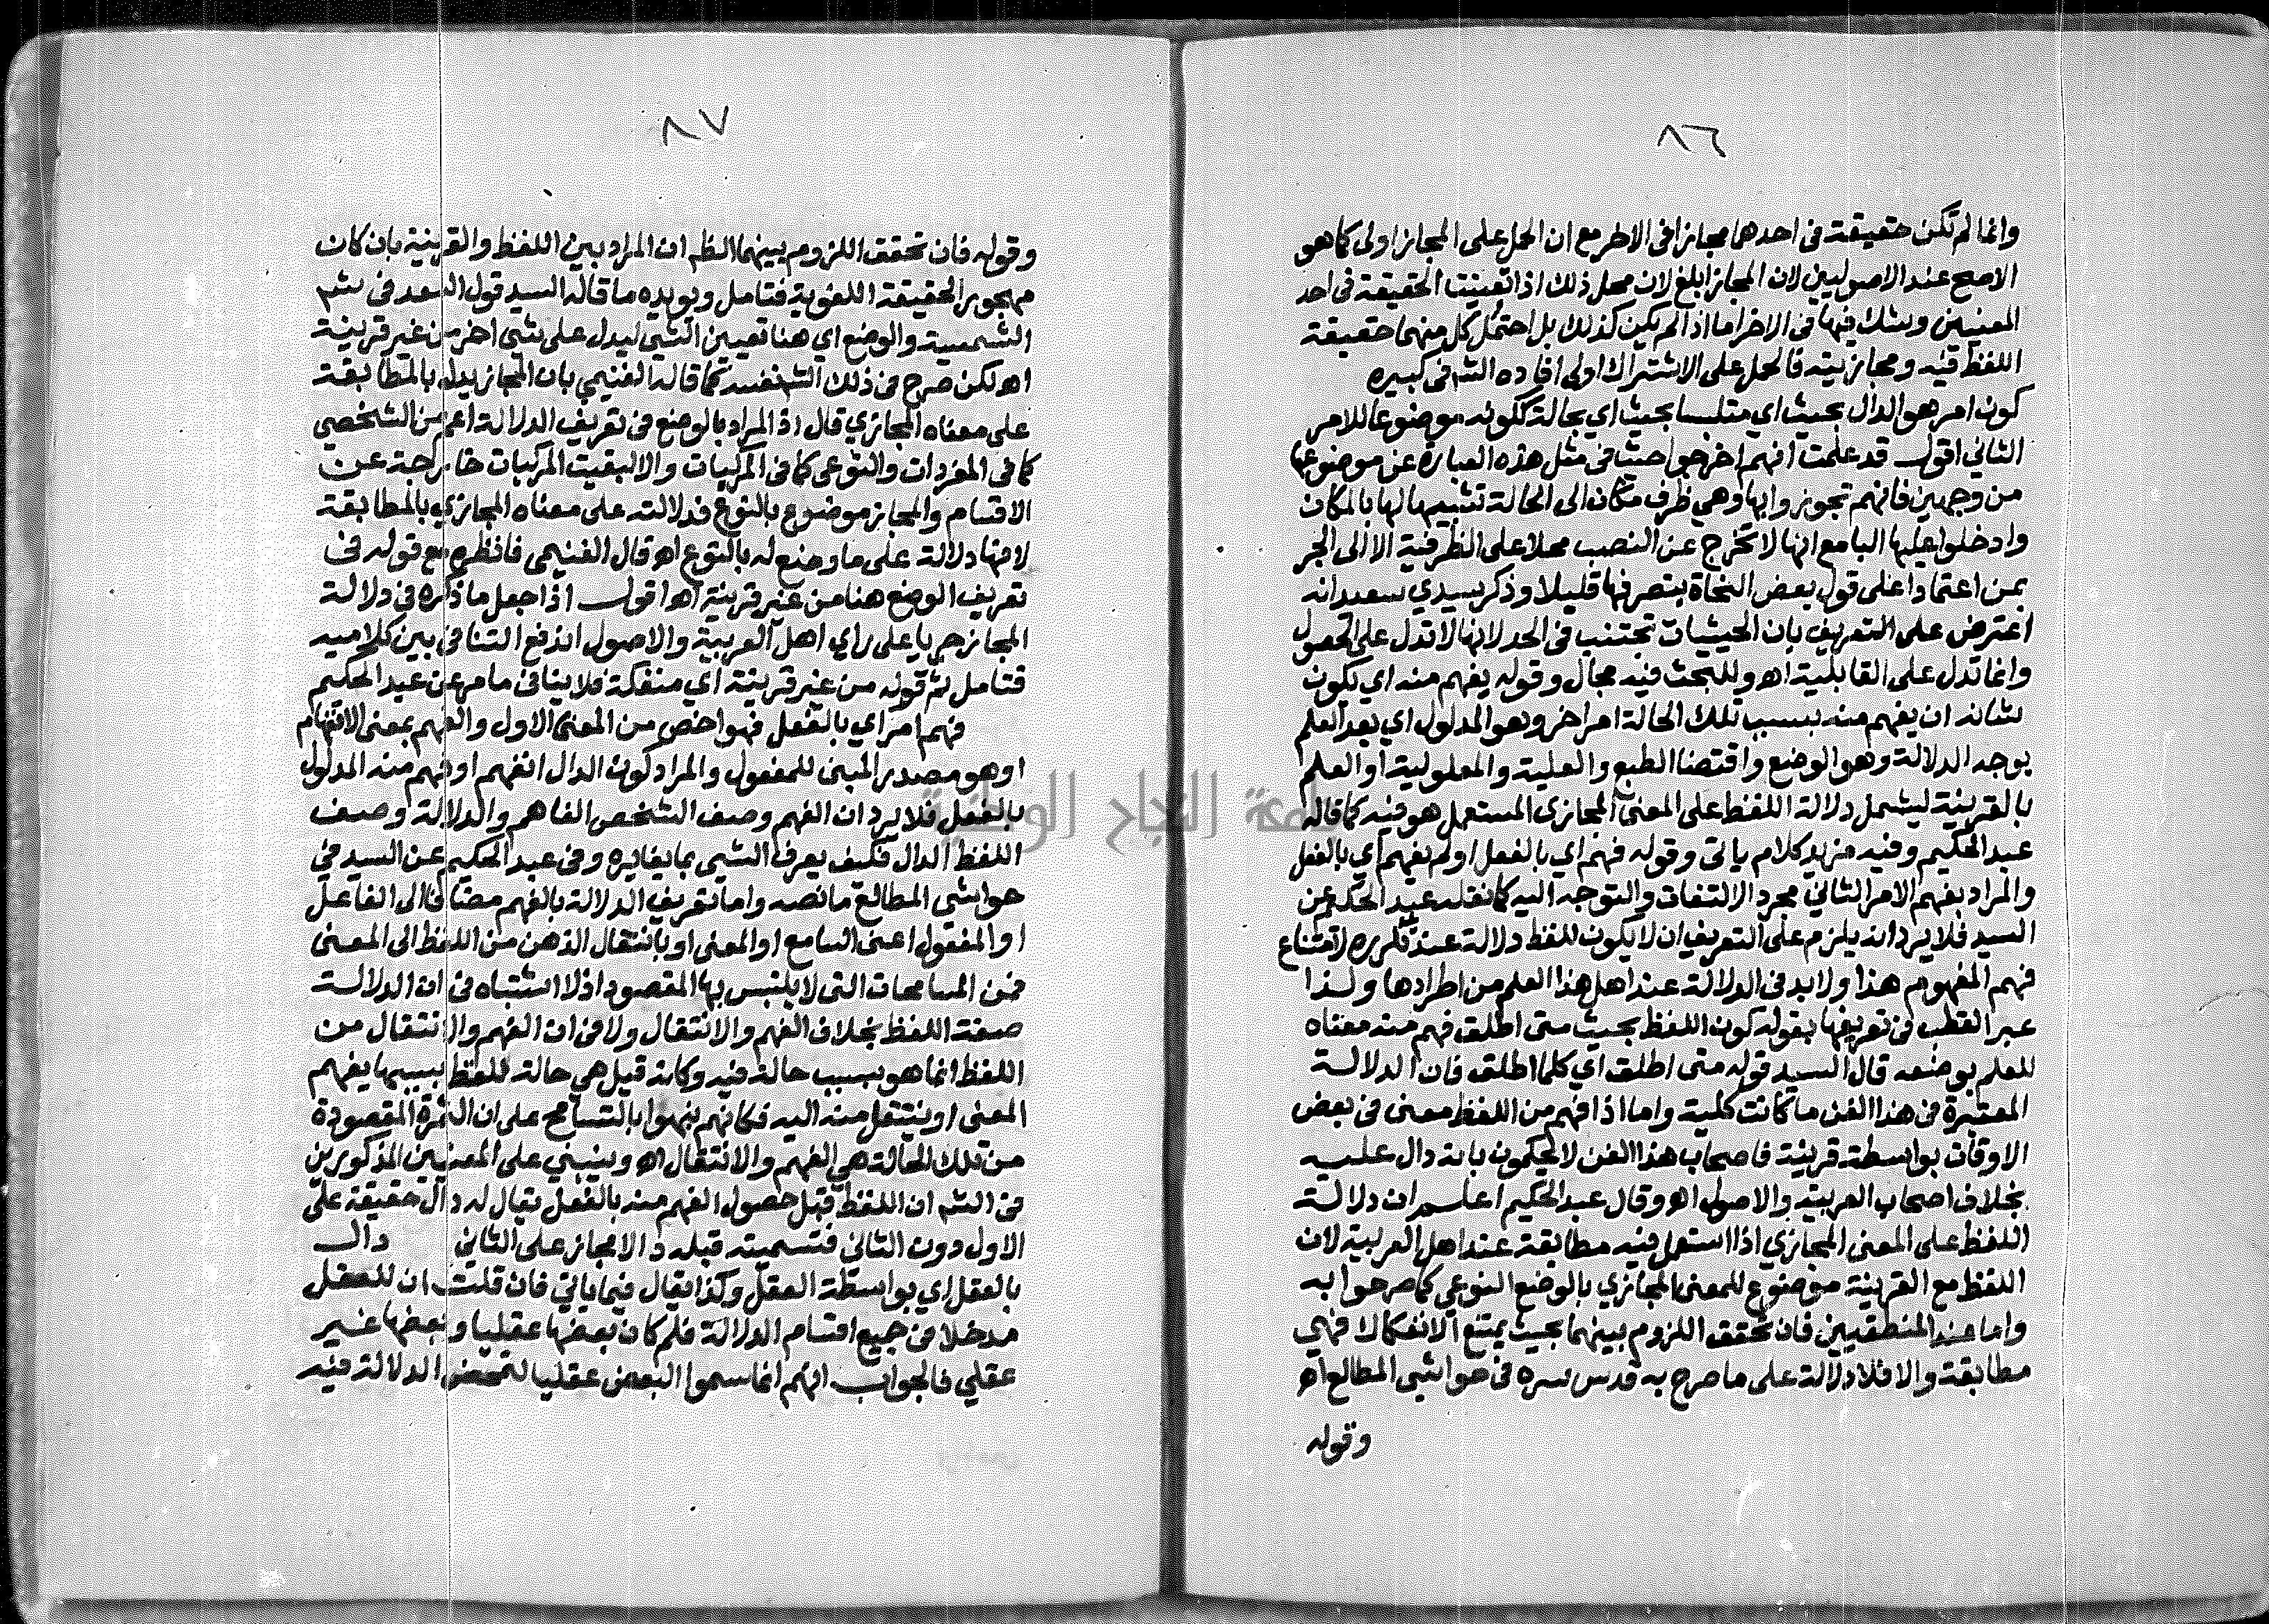 ٨٦
وانما لم تكن حقيقة فى احدهما مجازا فى الاخر مع ان الحمل على المجاز اولى كما هو
الاصح عند الاصوليين لان المجاز ابلغ لان محل ذلك اذا تعينت الحقيقة فى احد
المعنيين وشك فيها فى الاخر اما اذا لم يكن كذلك بل احتمل كل منهما حقيقة
اللفظ فيه ومجازيته فالحمل على الاشتراك اولى افاده الش فى كبيره
كون امر هو الدال بحيث اي متلبسا بحيث اي بحالة ككونه موضوعا للامر
الثاني اقول قد علمت انهم اخرجوا حيث فى مثل هذه العبارة عن موضوعها
من وجهين فانهم تجوزوا بها وهي ظرف مكان الى الحالة تشبيها لها بالمكان
وادخلوا عليها البا مع انها لا تخرج عن النصب محلا على الظرفية الا الى الجر
بمن اعتمادا على قول بعض النحاة بتصرفها قليلا وذكر سيدي سعيد انه
اعترض على التعريف بان الحيثيات تجتنب فى الحد لانها لا تدل على الحصول
وانما تدل على القابلية اه وللبحث فيه مجال وقوله يفهم منه اي يكون
شانه ان يفهم منه بسبب تلك الحالة امر اخر وهو المدلول اي بعد العلم
بوجه الدلالة وهو الوضع واقتضا الطبع والعلية والمعلولية او العلم
بالقرينة ليشمل دلالة اللفظ على المعنى المجازى المستعمل هو فيه كما قاله
عبد الحكيم وفيه مزيد كلام ياتى وقوله فهم اي بالفعل او لم يفهم اي بالفعل
والمراد بفهم الامر الثاني مجرد الالتفات والتوجه اليه كما نقله عبد الحكيم عن
السيد فلا يرد انه يلزم على التعريف ان لا يكون للفظ دلالة عند تكرره لامتناع
فهم المفهوم هذا ولا بد فى الدلالة عند اهل هذا العلم من اطرادها ولذا
عبر القطب فى تعريفها بقوله كون اللفظ بحيث متى اطلق فهم منه معناه
للعلم بوضعه قال السيد قوله متى اطلق اي كلما اطلق فان الدلالة
المعتبرة فى هذا الفن ما كانت كلية واما اذا فهم من اللفظ معنى فى بعض
الاوقات بواسطة قرينة فاصحاب هذا الفن لا يحكمون بانه دال عليه
بخلاف اصحاب العربية والاصول اه وقال عبد الحكيم اعلم ان دلالة
اللفظ على المعنى المجازي اذا استعمل فيه مطابقة عند اهل العربية لان
اللفظ مع القرينة موضوع للمعنى المجازي بالوضع النوعي كما صرحوا به
واما عند المنطقيين فان تحقق اللزوم بينهما بحيث يمتنع الانفكاك فهي
مطابقة والا فلا دلالة على ما صرح به قدس سره فى حواشي المطالع اه
وقوله
٨٧
وقوله فان تحقق اللزوم بينهما الظ ان المراد بين اللفظ والقرينة بان كان
مهجور الحقيقة اللغوية فتامل ويويده ما قاله السيد قول السعد فى شم
الشمسية والوضع اي هنا تعيين الشي ليدل على شي اخر من غير قرينة
اه لكن صرح فى ذلك الش نفسه كما قاله الغنيمي بان المجاز يدل بالمطابقة
على معناه المجازي قال اذ المراد بالوضع فى تعريف الدلالة اعم من الشخصي
كما فى المفردات والنوعى كما فى المركبات والا لبقيت المركبات خارجة عن
الاقسام والمجاز موضوع بالنوع فدلالته على معناه المجازي بالمطابقة
لانها دلالة على ما وضع له بالنوع اه قال الغنيمى فانظره مع قوله فى
تعريف الوضع هنا من غير قرينة اه اقول اذا جعل ما ذكره فى دلالة
المجاز جريا على راي اهل العربية والاصول اندفع التنافى بين كلاميه
فتامل ثم قوله من غير قرينة اي منفكة فلا ينافى ما مر عن عبد الحكيم
فهم امر اي بالفعل فهو اخص من المعنى الاول والفهم بمعنى الانفهام
او هو مصدر المبنى للمفعول والمراد كون الدال انفهم او فهم منه المدلول
بالفعل فلا يرد ان الفهم وصف الشخص الفاهم والدلالة وصف
اللفظ الدال فكيف يعرف الشي بما يغايره وفى عبد الحكيم عن السيد فى
حواشى المطالع ما نصه واما تعريف الدلالة بالفهم مضافا الى الفاعل
او المفعول اعنى السامع او المعنى او بانتقال الذهن من اللفظ الى المعنى
فمن المسامحات التى لا يلتبس بها المقصود اذ لا اشتباه فى ان الدلالة
صفة اللفظ بخلاف الفهم والانتقال ولا فى ان الفهم والانتقال من
اللفظ انما هو بسبب حالة فيه وكانه قيل هي حالة للفظ بسببها يفهم
المعنى او ينتقل منه اليه فكانهم نبهوا بالتسامح على ان الثمرة المقصودة
من تلك الحالة هي الفهم والانتقال اه وينبني على المعنيين المذكورين
فى الش ان اللفظ قبل حصول الفهم منه بالفعل يقال له دال حقيقة على
الاول دون الثاني فتسميته قبله دالا مجاز على الثاني دال
بالعقل اي بواسطة العقل وكذا يقال فيما ياتي فان قلت ان للعقل
مدخلا فى جميع اقسام الدلالة فلم كان بعضها عقليا وبعضها غير
عقلي فالجواب انهم انما سموا البعض عقليا لتمحض الدلالة فيه
جامعة النجاح الوطنية